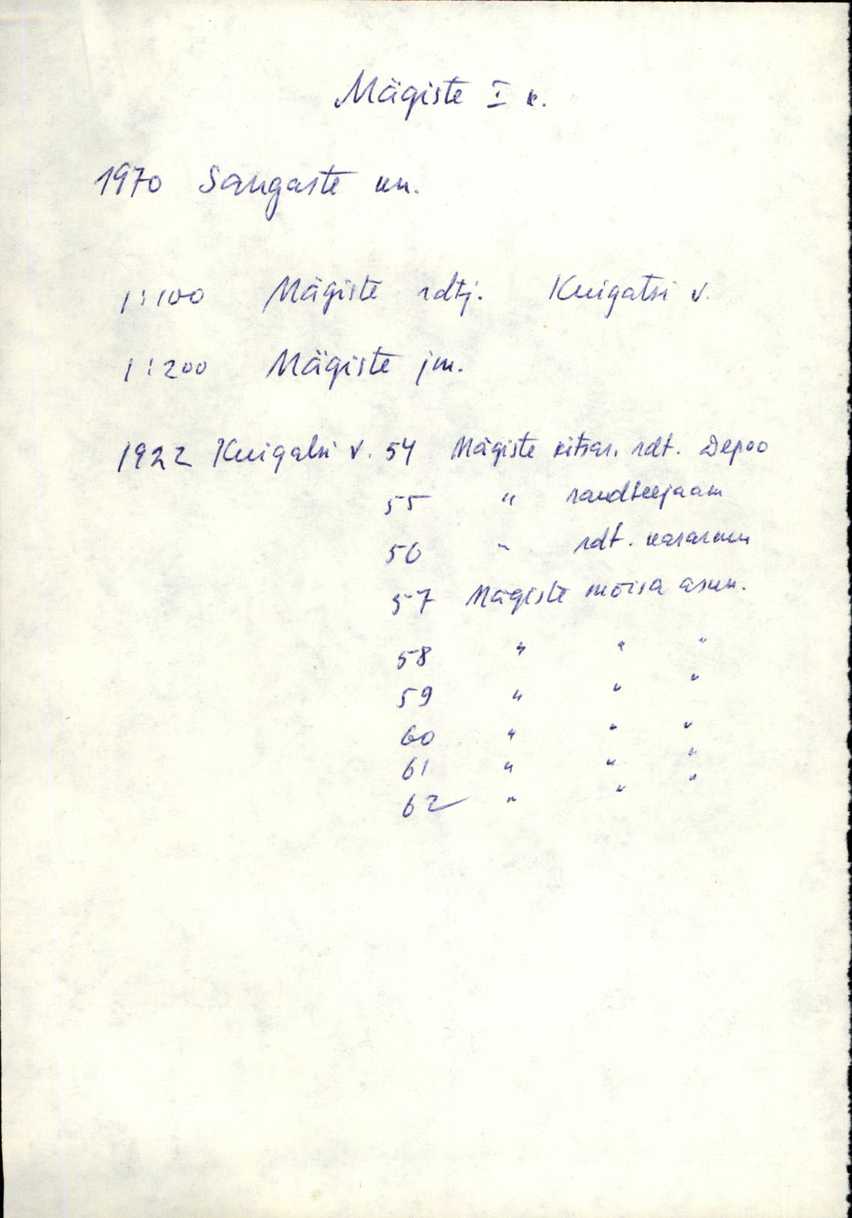 Mägiste I k.
1970 Sangaste kn.
1:100 Mägiste rdtj. Kuigatsi v.
1:200 Mägiste jm.
1922 Kuigatsi v. 54 Mägiste kitsar. rdt. Depoo
55 " raudteejaam
56 " rdt. kasarmu
57 Mägiste mõisa asun.
58 " " "
59 " " "
60 " " "
61 " " "
62 " " "